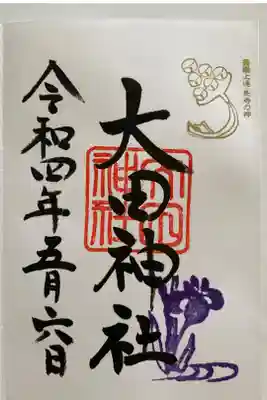 大田神社
令和四年五月六日